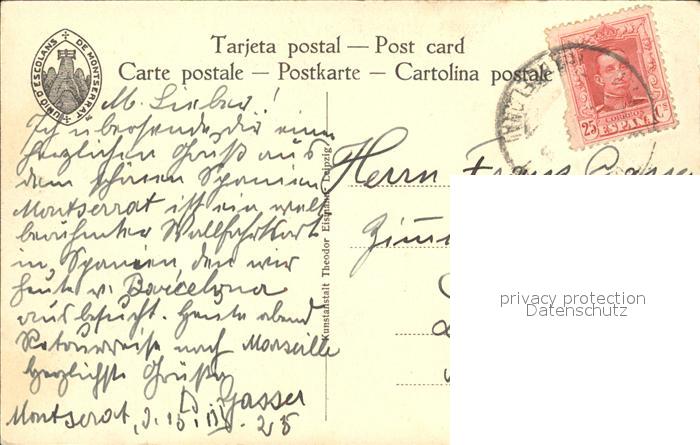 UNIO D'ESCOLANS DE MONTSERRAT
Tarjeta postal — Post card
Carte postale — Postkarte — Cartolina postale
CORREOS
25 ESPAÑA Cs
M. Lieber!
Ich übersende dir einen
herzlichen Gruß aus
dem schönen Spanien
Montserrat ist ein welt
berühmter Wallfahrtsort
in Spanien den wir
heute v. Barcelona
aus besucht. Heute abend
Retourreise nach Marseille
herzlichste Grüße
Gasser
Montserrat,
Kunstanstalt Theodor Eismann, Leipzig
Herrn Franz
privacy protection
Datenschutz